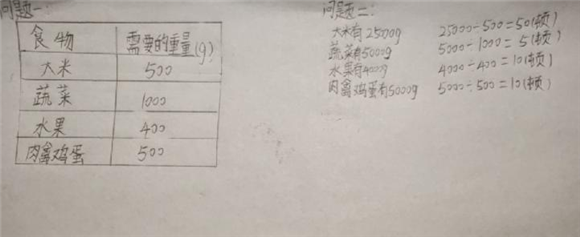 问题一:
食物 需要的重量(g)
大米 500
蔬菜 1000
水果 400
肉禽鸡蛋 500
问题二:
大米有25000g 25000÷500=50(顿)
蔬菜有5000g 5000÷1000=5(顿)
水果有4000g 4000÷400=10(顿)
肉禽鸡蛋有5000g 5000÷500=10(顿)